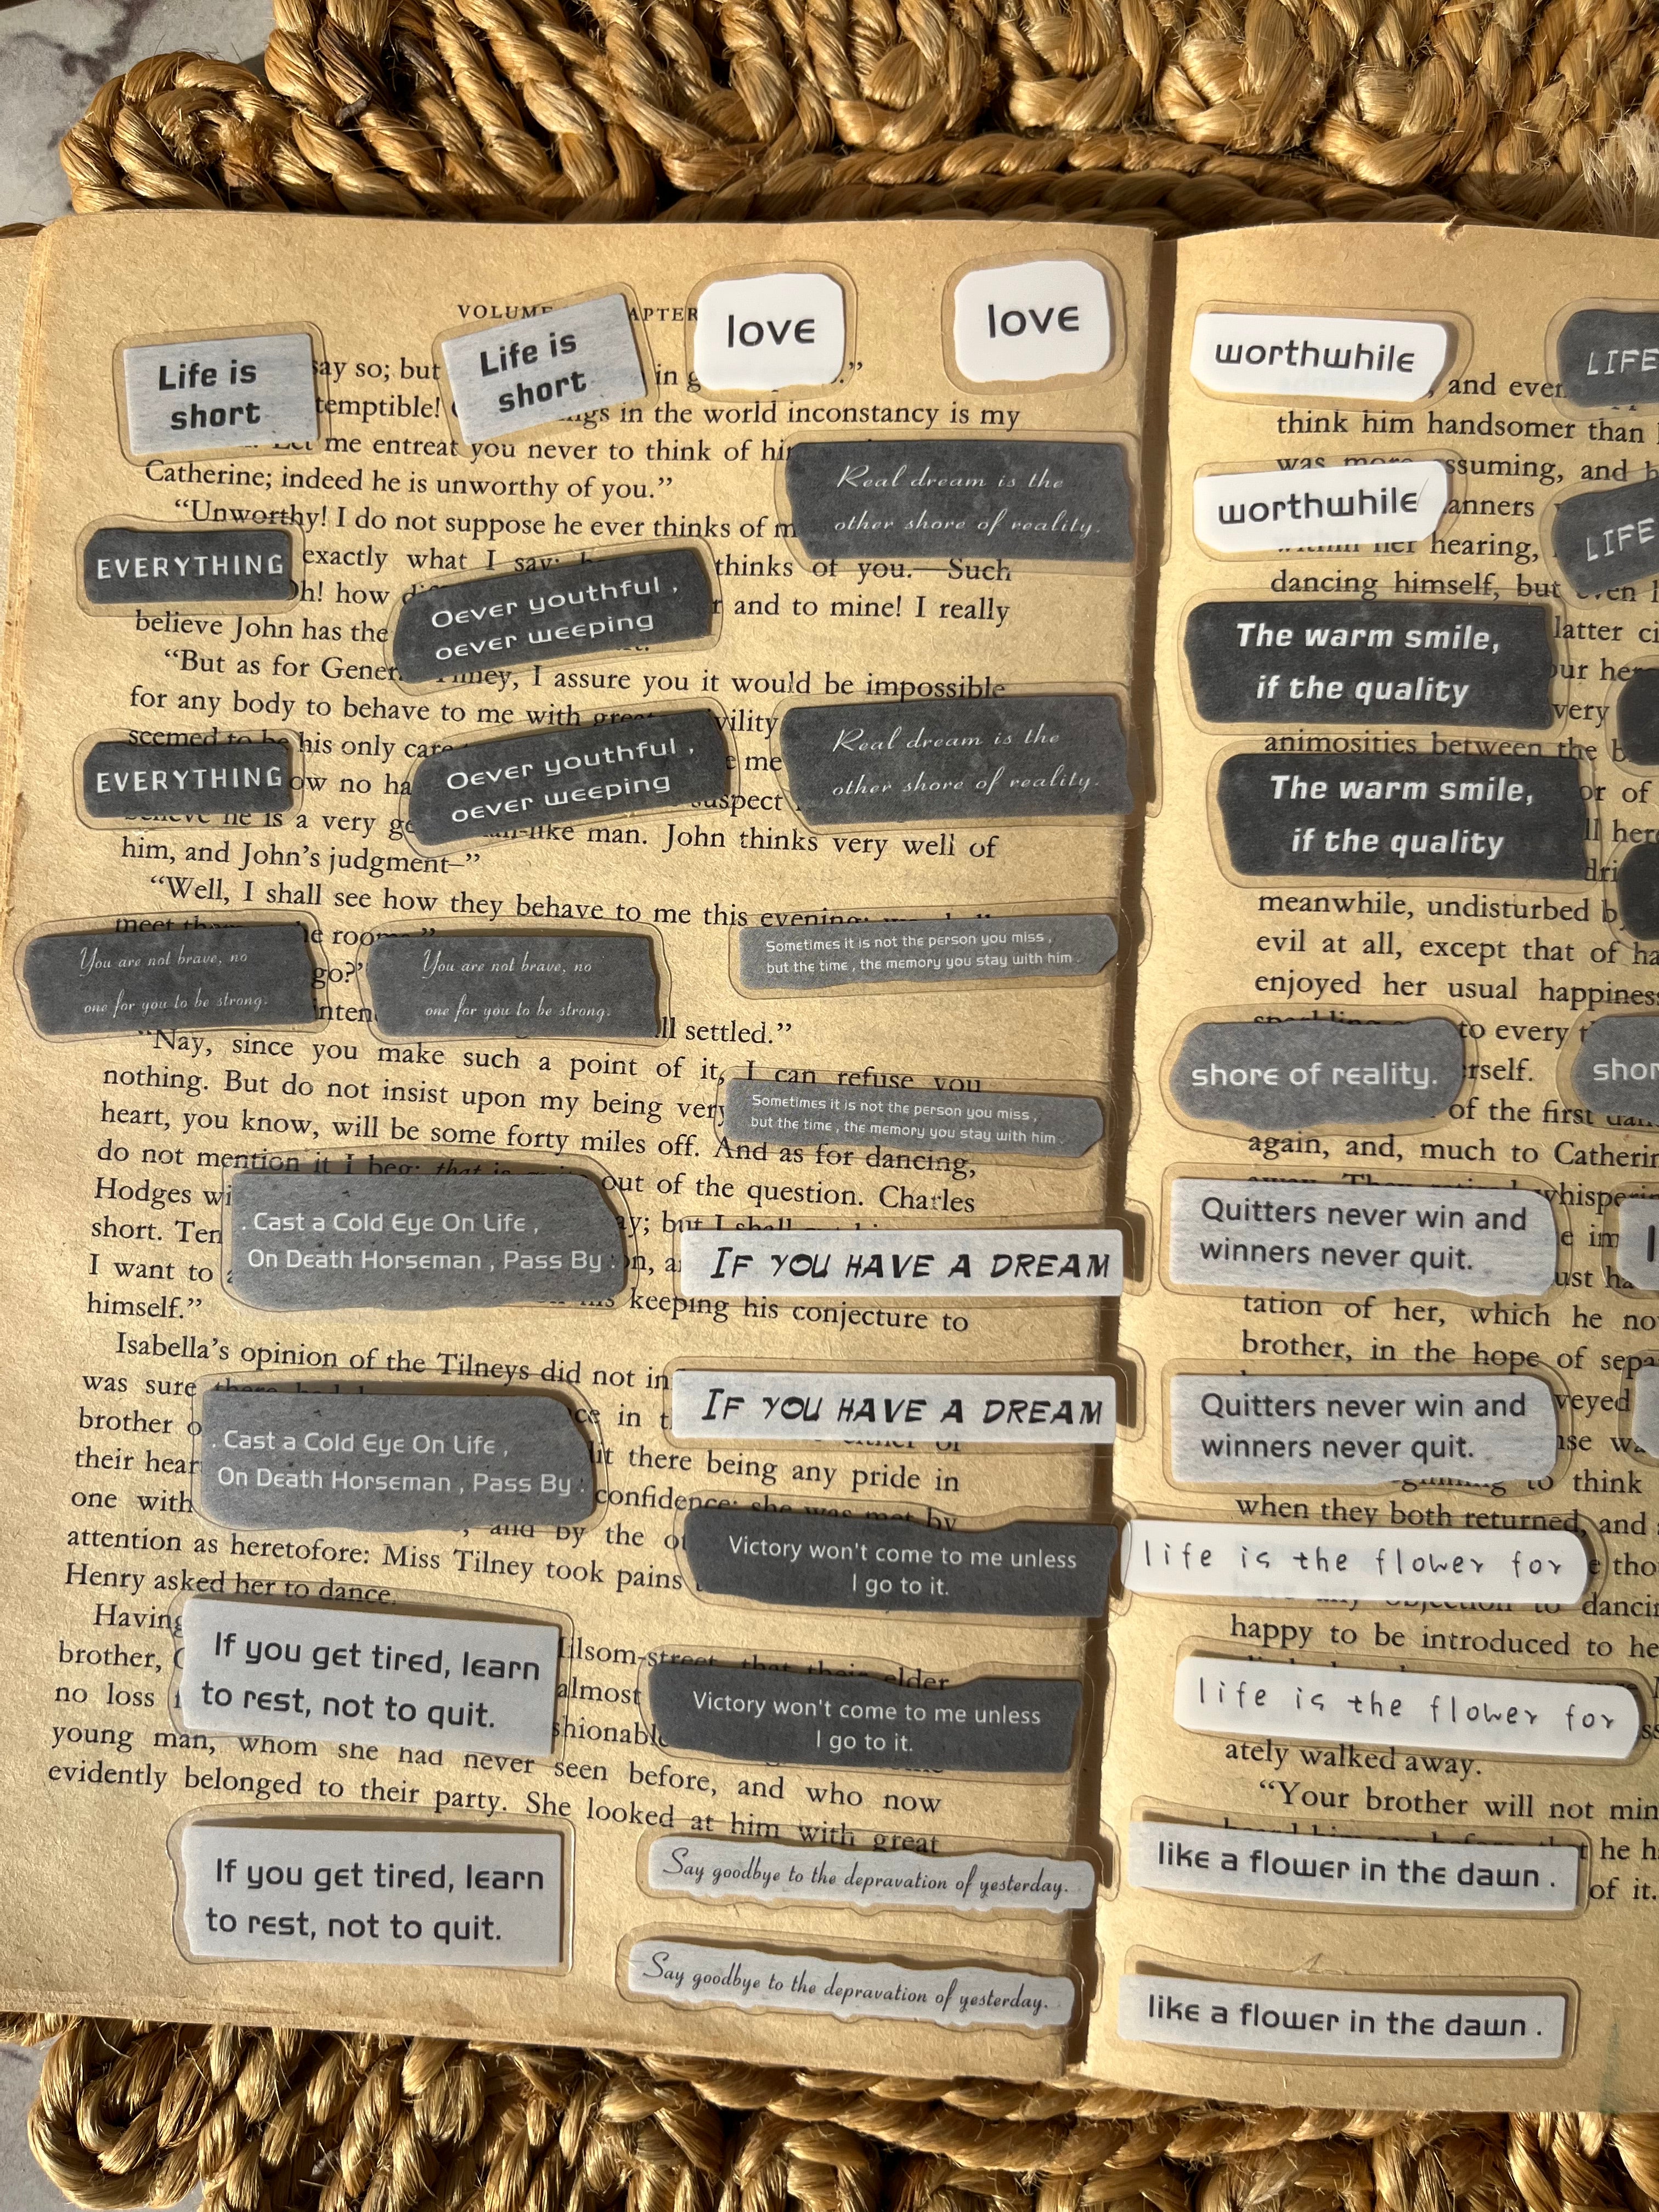 VOLUME
APTER
Life is
short
Life is
short
love
love
say so; but
in g
temptible!
ngs in the world inconstancy is my
me entreat you never to think of
Catherine; indeed he is unworthy of you.”
“Unworthy! I do not suppose he ever thinks of
Real dream is the
other shore of reality.
EVERYTHING
exactly what I say;
thinks of you.—Such
h! how
Oever youthful ,
oever weeping
and to mine! I really
believe John has the
“But as for General Tilney, I assure you it would be impossible
for any body to behave to me with great civility
seemed to be his only care
EVERYTHING
ow no ha
Oever youthful ,
oever weeping
me
suspect
Real dream is the
other shore of reality.
believe he is a very gentleman-like man. John thinks very well of
him, and John’s judgment–”
“Well, I shall see how they behave to me this evening;
meet them
room
You are not brave, no
one for you to be strong.
go?”
inten
You are not brave, no
one for you to be strong.
Sometimes it is not the person you miss ,
but the time , the memory you stay with him .
ll settled.”
“Nay, since you make such a point of it, I can refuse you
nothing. But do not insist upon my being very
Sometimes it is not the person you miss ,
but the time , the memory you stay with him .
heart, you know, will be some forty miles off. And as for dancing,
do not mention it I beg; that is
out of the question. Charles
Hodges wi
short. Ten
y; but I shall
. Cast a Cold Eye On Life ,
On Death Horseman , Pass By :
I want to
IF YOU HAVE A DREAM
himself.”
keeping his conjecture to
Isabella’s opinion of the Tilneys did not in
was sure
brother
in
IF YOU HAVE A DREAM
. Cast a Cold Eye On Life ,
On Death Horseman , Pass By :
their hear
there being any pride in
one with
confidence; she was met by
and by the
attention as heretofore: Miss Tilney took pains
Victory won't come to me unless
I go to it.
Henry asked her to dance.
Having
lsom-street, that their elder
brother,
almost
If you get tired, learn
to rest, not to quit.
no loss
shionable
Victory won't come to me unless
I go to it.
young man, whom she had never seen before, and who now
evidently belonged to their party. She looked at him with great
If you get tired, learn
to rest, not to quit.
Say goodbye to the depravation of yesterday.
Say goodbye to the depravation of yesterday.
worthwhile
LIFE
, and even
think him handsomer than
was more assuming, and
worthwhile
anners
LIFE
within her hearing,
dancing himself, but even
The warm smile,
if the quality
latter
our her
very
animosities between the
The warm smile,
if the quality
or of
ll here
meanwhile, undisturbed
evil at all, except that of
enjoyed her usual happiness
to every
shore of reality.
shor
rself.
of the first
again, and, much to
whisper
Quitters never win and
winners never quit.
tation of her, which he
brother, in the hope of
Quitters never win and
winners never quit.
to think
when they both returned, and
life is the flower for
any objection to
happy to be introduced to
life is the flower for
ately walked away.
“Your brother will not
like a flower in the dawn .
he
of it.
like a flower in the dawn .